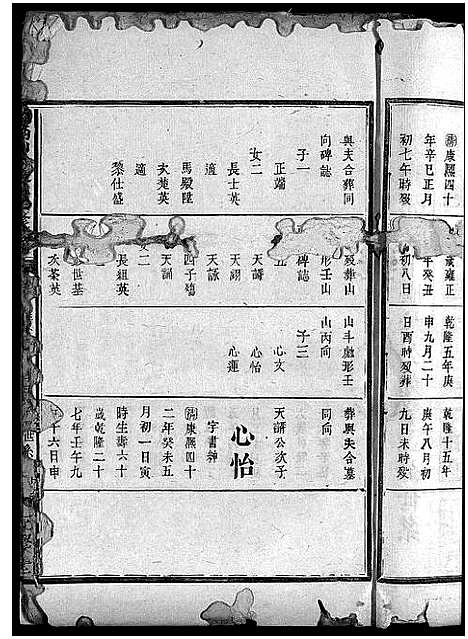 清康熙四十
年辛巳正月
初七午時歿
與夫合葬同
向碑誌
子一
正端
女二
長士英
適
馬殿陞
次楚英
適
黎仕盛
歲雍正
年癸丑
初八日
葬山
形壬山
碑誌
天諝
天翊
天詠
四子
天訓
二
長組英
世基
次茶英
乾隆五年庚
申九月二十
日酉時歿葬
山斗 形壬
山丙向
子三
心文
心怡
心運
乾隆十五年
庚午八月初
九日未時歿
葬與夫合墓
同向
天諝公次子
心怡
字書紳
清康熙四十
二年癸未五
月初一日寅
時生壽六十
歲乾隆二十
七年壬午九
十六日申